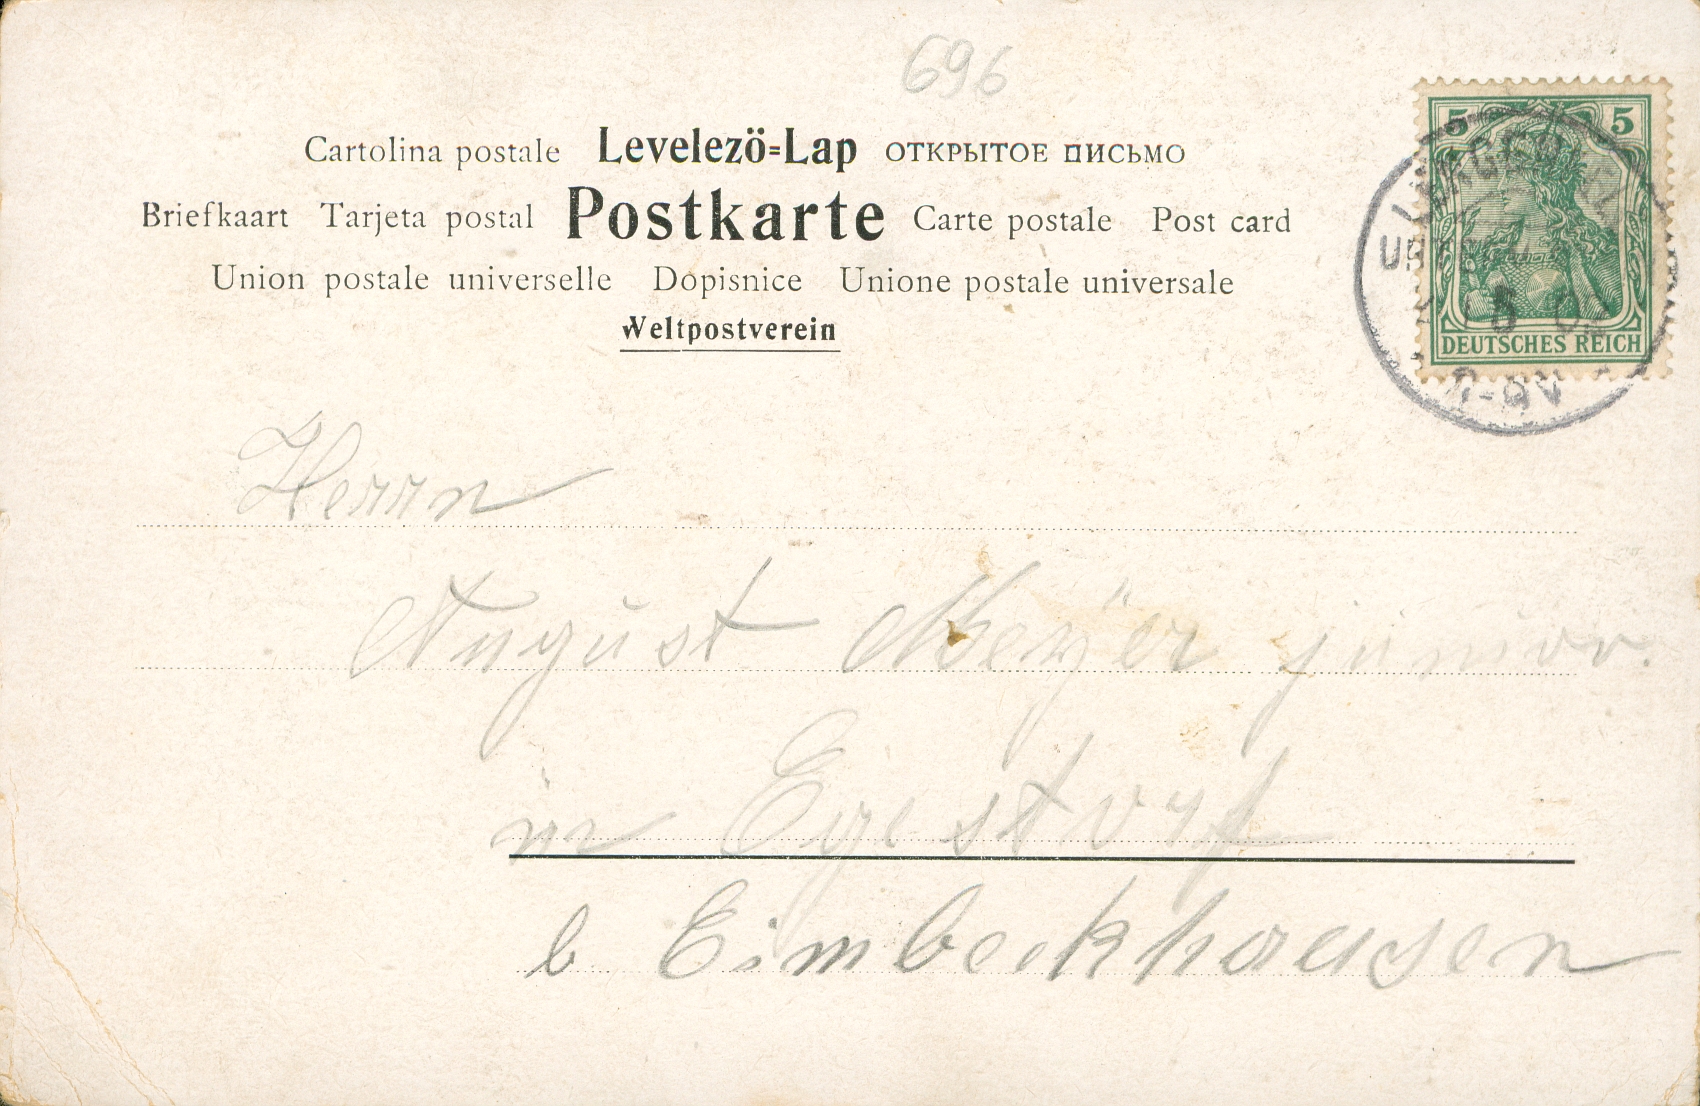 696
Cartolina postale Levelezö=Lap ОТКРЫТОЕ ПИСЬМО
Briefkaart Tarjeta postal Postkarte Carte postale Post card
Union postale universelle Dopisnice Unione postale universale
Weltpostverein
5 5
DEUTSCHES REICH
Herrn
August Meÿer junior.
in Egestorf
b Eimbeckhausen